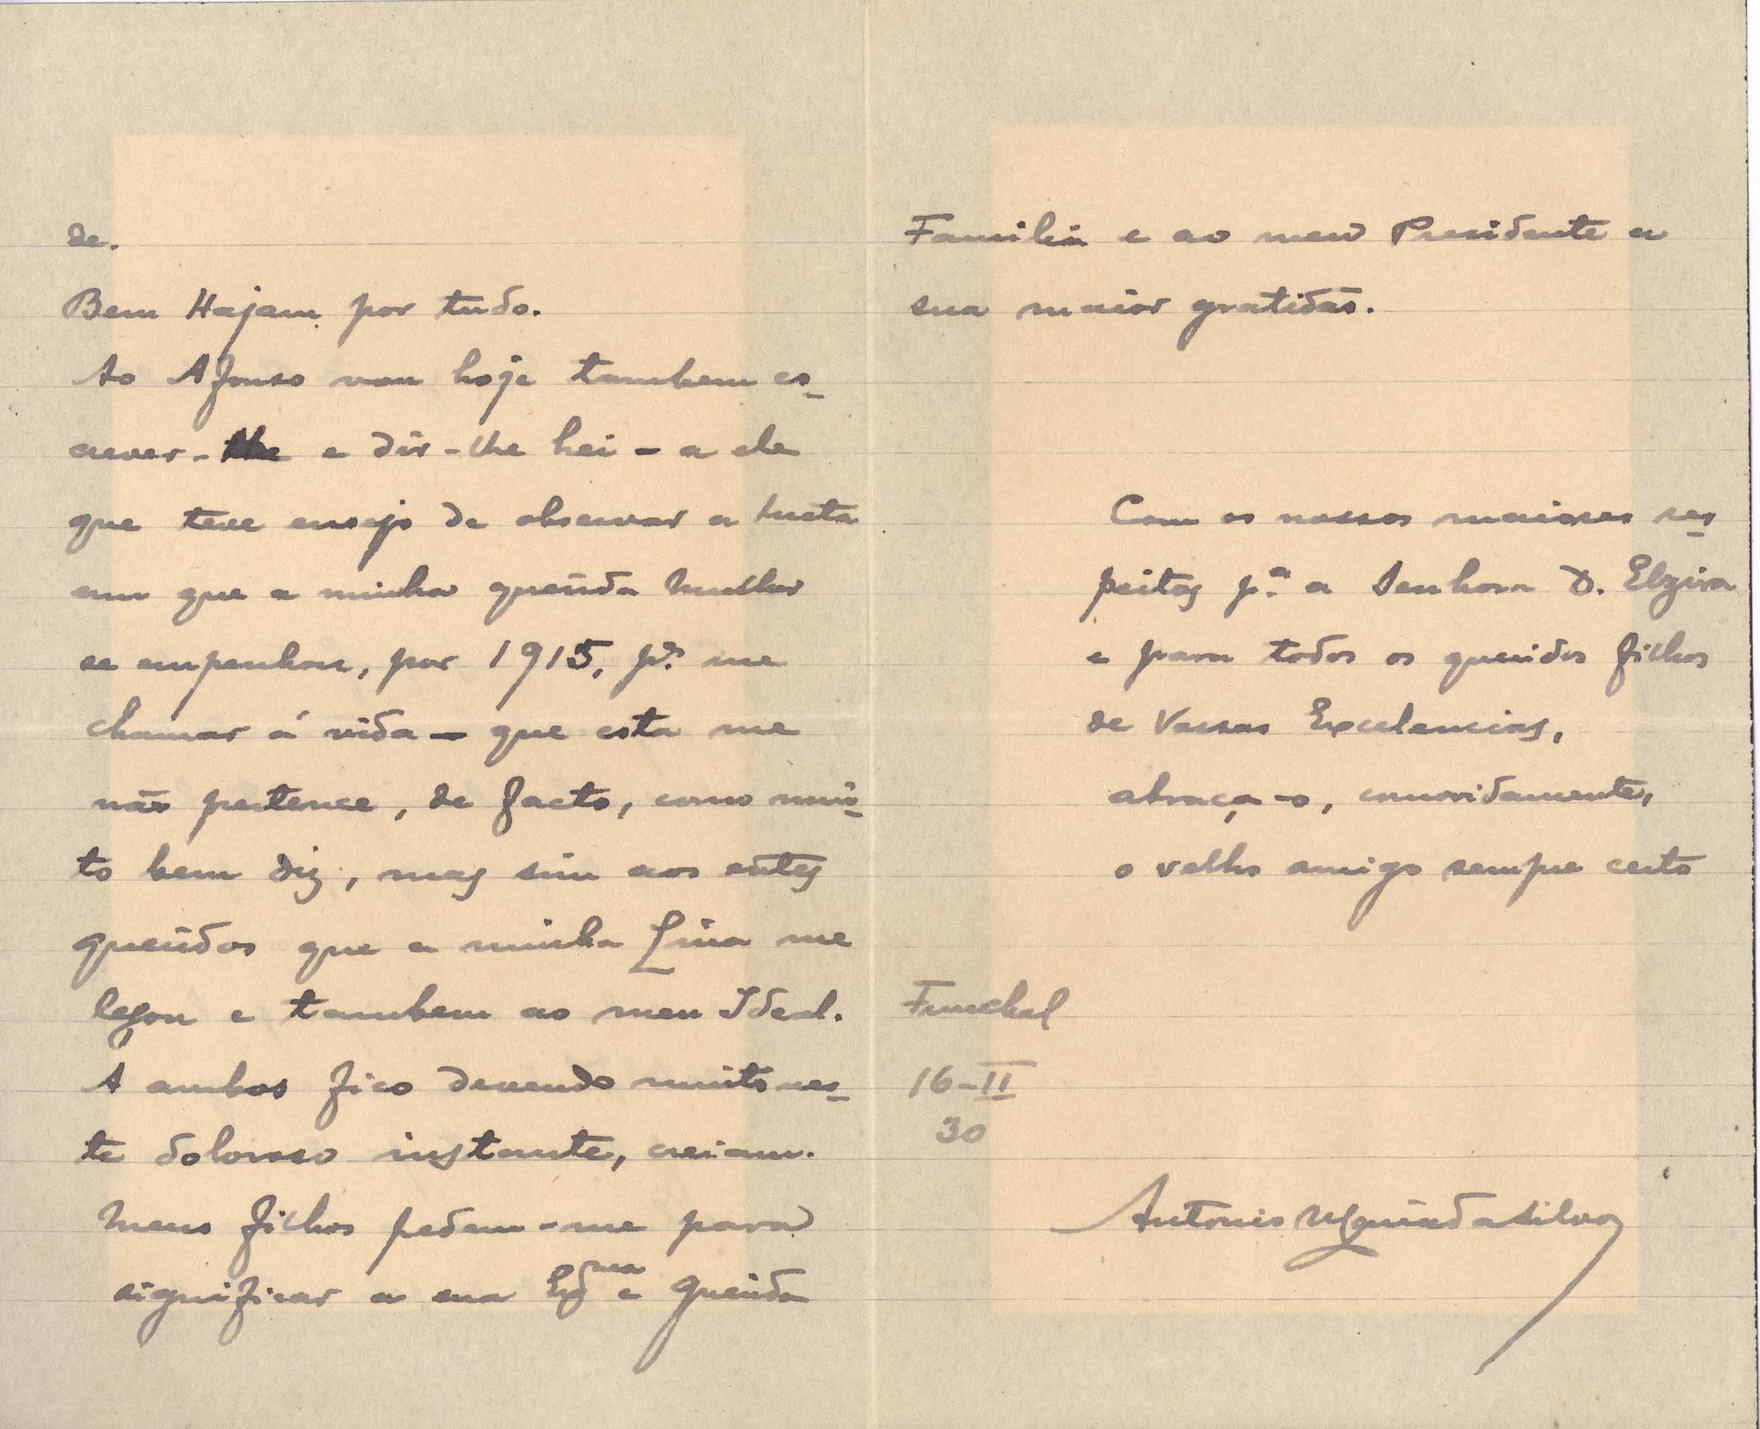 de.
Bem Hajam por tudo.
Ao Afonso vou hoje tambem es-
crever- e dir-lhe hei - a ele
que teve ensejo de observar a lucta
em que a minha querida Mulher
se empenhou, por 1915, pª me
chamar á vida - que esta me
não pertence, de facto, como mui-
to bem diz, mas sim aos entes
queridos que a minha Lina me
legou e tambem ao meu Ideal.
A ambos fico devendo muito nes-
te doloroso instante, creiam.
Meus filhos pedem-me para
significar a sua e querida
Familia e ao meu Presidente a
sua maior gratidão.
Com os nossos maiores res-
peitos p.ª a Senhora D. Elzira
e para todos os queridos filhos
de Vossas Excelencias,
abraça-o, comovidamente,
o velho amigo sempre certo
Funchal
16-II
30
Antonio da Silva